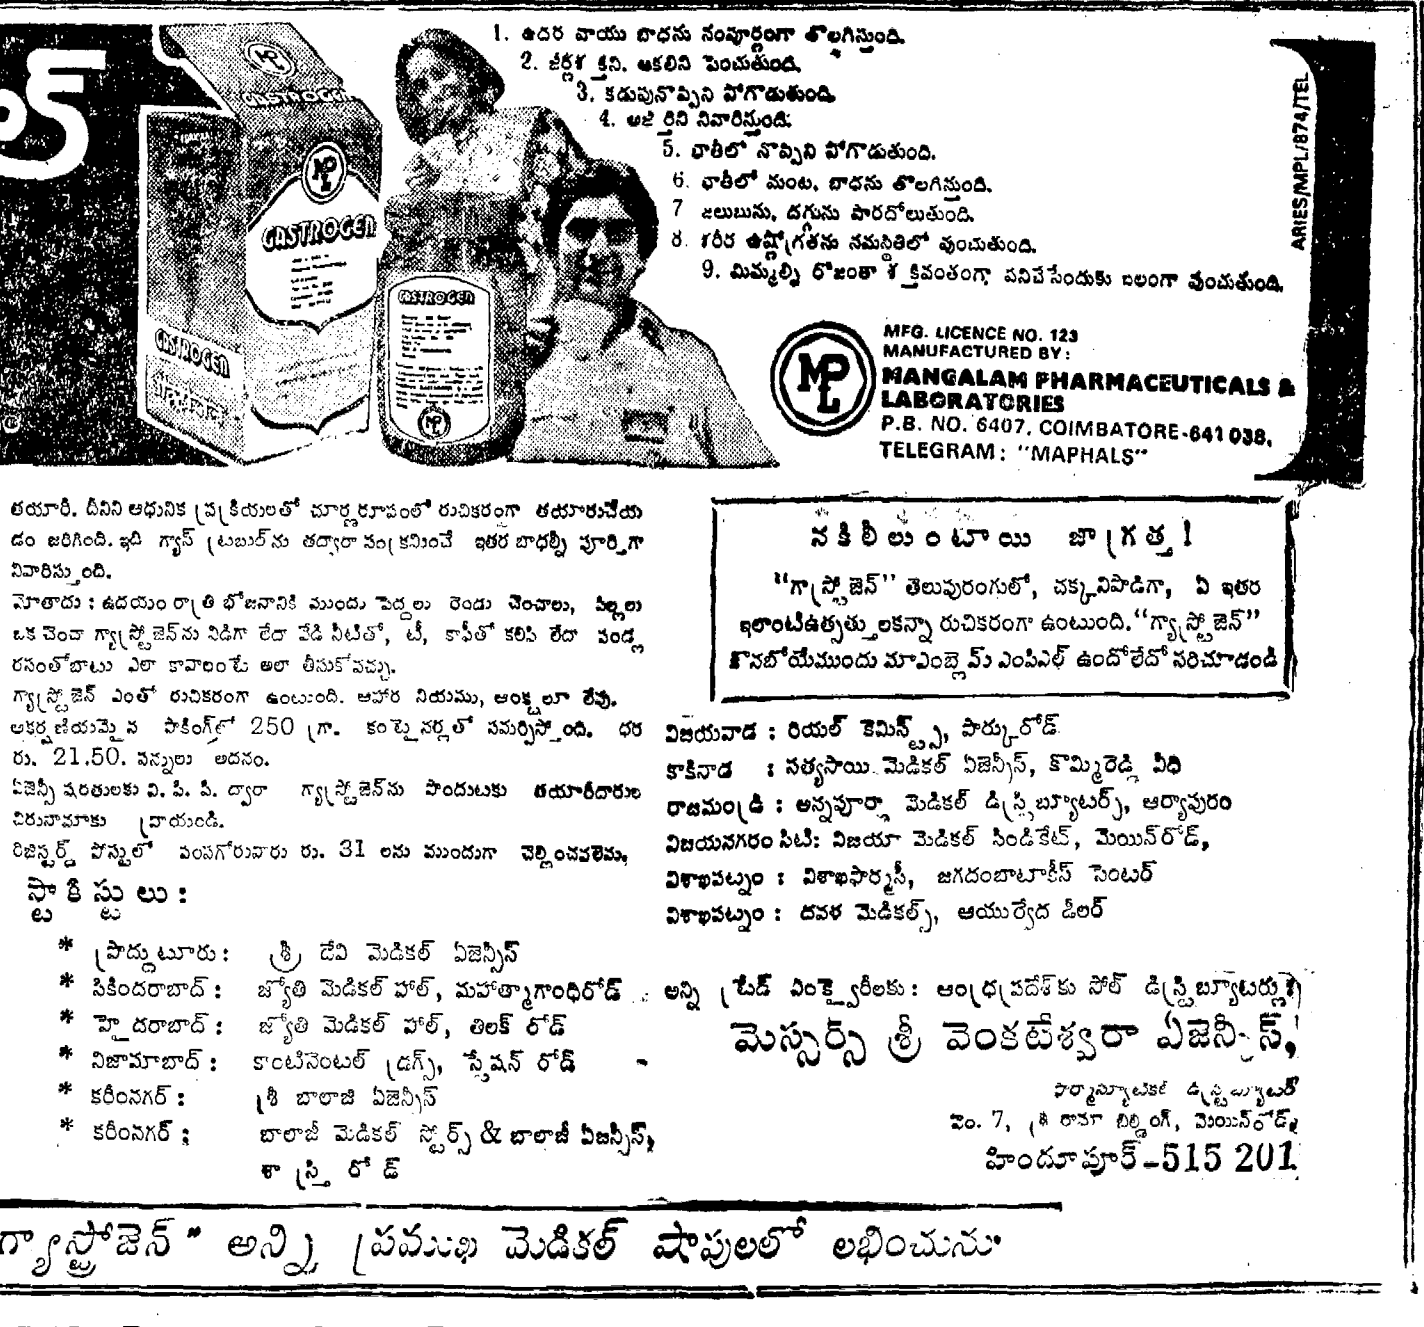 1. ఉదర వాయు బాధను సంపూర్ణంగా తొలగిస్తుంది.
2. జీర్ణశక్తిని, ఆకలిని పెంచుతుంది.
3. కడుపునొప్పిని పోగొడుతుంది.
4. అజీర్తిని నివారిస్తుంది.
5. ఛాతీలో నొప్పిని పోగొడుతుంది.
6. ఛాతీలో మంట, బాధను తొలగిస్తుంది.
7 జలుబును, దగ్గును పారదోలుతుంది.
8. శరీర ఉష్ణోగ్రతను సమస్థితిలో వుంచుతుంది.
9. మిమ్మల్ని రోజంతా శక్తివంతంగా, పనిచేసేందుకు బలంగా వుంచుతుంది.
ARIES/MPL/874/TEL
MPL
GASTROGEN
MPL
GASTROGEN
GASTROGEN
GASTROGEN
MPL
MPL
MFG. LICENCE NO. 123
MANUFACTURED BY:
MANGALAM PHARMACEUTICALS &
LABORATORIES
P.B. NO. 6407, COIMBATORE-641 038,
TELEGRAM: "MAPHALS"
తయారీ. దీనిని ఆధునిక ప్రక్రియలతో చూర్ణరూపంలో రుచికరంగా తయారుచేయ
డం జరిగింది. ఇది గ్యాస్ ట్రబుల్‌ను తద్వారా సంక్రమించే ఇతర బాధల్ని పూర్తిగా
నివారిస్తుంది.
మోతాదు : ఉదయం రాత్రి భోజనానికి ముందు పెద్దలు రెండు చెంచాలు, పిల్లలు
ఒక చెంచా గ్యాస్ట్రోజెన్‌ను విడిగా లేదా వేడి నీటితో, టీ, కాఫీతో కలిపి లేదా పండ్ల
రసంతోబాటు ఎలా కావాలంటే అలా తీసుకోవచ్చు.
గ్యాస్ట్రోజెన్ ఎంతో రుచికరంగా ఉంటుంది. ఆహార నియమం, ఆంక్షలూ లేవు.
ఆకర్షణీయమైన పాకింగ్‌లో 250 గ్రా. కంటైనర్లతో సమర్పిస్తోంది. ధర
రు. 21.50. పన్నులు అదనం.
ఏజెన్సీ షరతులకు వి. పి. పి. ద్వారా గ్యాస్ట్రోజెన్‌ను పొందుటకు తయారీదారుల
చిరునామాకు వ్రాయండి.
రిజిస్టర్డ్ పోస్టులో పంపగోరువారు రు. 31 లను ముందుగా చెల్లించవలెను.
స్టాకిస్టులు :
* ప్రొద్దుటూరు : శ్రీ దేవి మెడికల్ ఏజెన్సీస్
* సికిందరాబాద్ : జ్యోతి మెడికల్ హాల్, మహాత్మాగాంధిరోడ్
* హైదరాబాద్ : జ్యోతి మెడికల్ హాల్, తిలక్ రోడ్
* నిజామాబాద్ : కాంటినెంటల్ డ్రగ్స్, స్టేషన్ రోడ్
* కరీంనగర్ : శ్రీ బాలాజి ఏజెన్సీస్
* కరీంనగర్ : బాలాజీ మెడికల్ స్టోర్స్ & బాలాజీ ఏజన్సీస్,
శాస్త్రి రోడ్
నకిలీలుంటాయి జాగ్రత్త !
"గ్యాస్ట్రోజెన్" తెలుపురంగులో, చక్కనిపొడిగా, ఏ ఇతర
ఇలాంటిఉత్పత్తులకన్నా రుచికరంగా ఉంటుంది. "గ్యాస్ట్రోజెన్"
కొనబోయేముందు మాఎంబ్లెమ్ ఎంపిఎల్ ఉందోలేదో సరిచూడండి
విజయవాడ : రియల్ కెమిస్ట్స్, పార్కురోడ్
కాకినాడ : సత్యసాయి మెడికల్ ఏజెన్సీస్, కొమ్మిరెడ్డి వీధి
రాజమండ్రి : అన్నపూర్ణా మెడికల్ డిస్ట్రిబ్యూటర్స్, ఆర్యాపురం
విజయనగరం సిటి: విజయా మెడికల్ సిండికేట్, మెయిన్‌రోడ్,
విశాఖపట్నం : విశాఖఫార్మసీ, జగదంబాటాకీస్ సెంటర్
విశాఖపట్నం : దవళ మెడికల్స్, ఆయుర్వేద డీలర్
అన్ని ట్రేడ్ ఎంక్వైరీలకు : ఆంధ్రప్రదేశ్‌కు సోల్ డిస్ట్రిబ్యూటర్లు :
మెస్సర్స్ శ్రీ వెంకటేశ్వరా ఏజెన్సీస్,
ఫార్మాస్యూటికల్ డిస్ట్రిబ్యూటర్
నెం. 7, శ్రీ రామా బిల్డింగ్, మెయిన్‌రోడ్,
హిందూపూర్-515 201
గ్యాస్ట్రోజెన్" అన్ని ప్రముఖ మెడికల్ షాపులలో లభించును